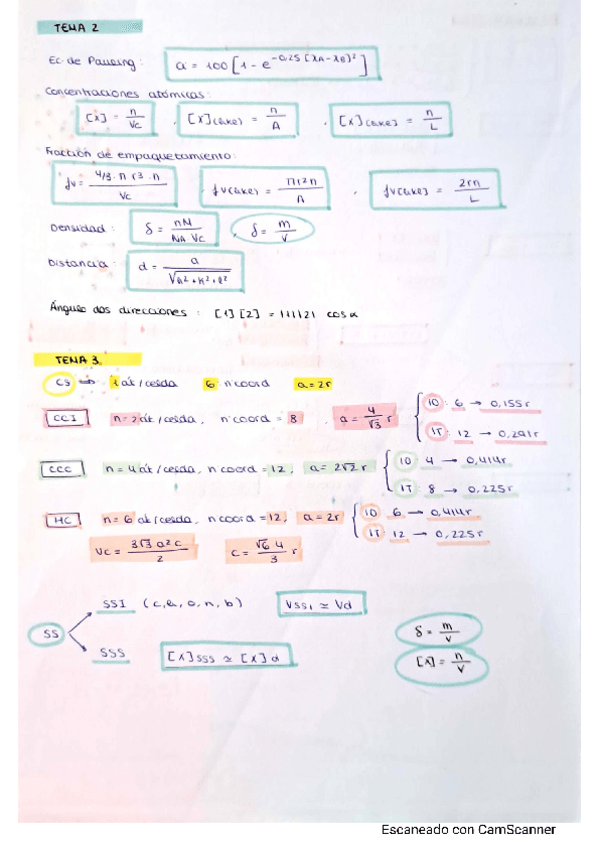 TEMA 2
Ec. de Pauling: a = 100 [1 - e^-0,25 [XA - XB]²]
Concentraciones atómicas:
[X] = n / Vc , [X](área) = n / A , [X](línea) = n / L
Fracción de empaquetamiento:
fv = 4/3 · π r³ · n / Vc fv(área) = πr²n / A , fv(línea) = 2rn / L
Densidad: δ = nM / NA Vc , δ = m / V
Distancia: d = a / √h² + k² + l²
Ángulo dos direcciones: [1][2] = |1||2| cos α
TEMA 3.
CS → 1 át/celda 6 n°coord a = 2r
CCI n = 2 át/celda, n°coord = 8 , a = 4/√3 r { IO: 6 → 0,155r
IT: 12 → 0,291r
CCC n = 4 át/celda, n°coord = 12, a = 2√2 r { IO 4 → 0,414r
IT: 8 → 0,225r
HC n = 6 at/celda, n°coord = 12, a = 2r { IO 6 → 0,414r
IT 12 → 0,225r
Vc = 3√3 a²c / 2 c = √6 4 / 3 r
SS
SSI (c, h, o, n, b) VSSI ≃ Vd
SSS [X]SSS ≃ [X]d
δ = m / V
[X] = n / V
Escaneado con CamScanner